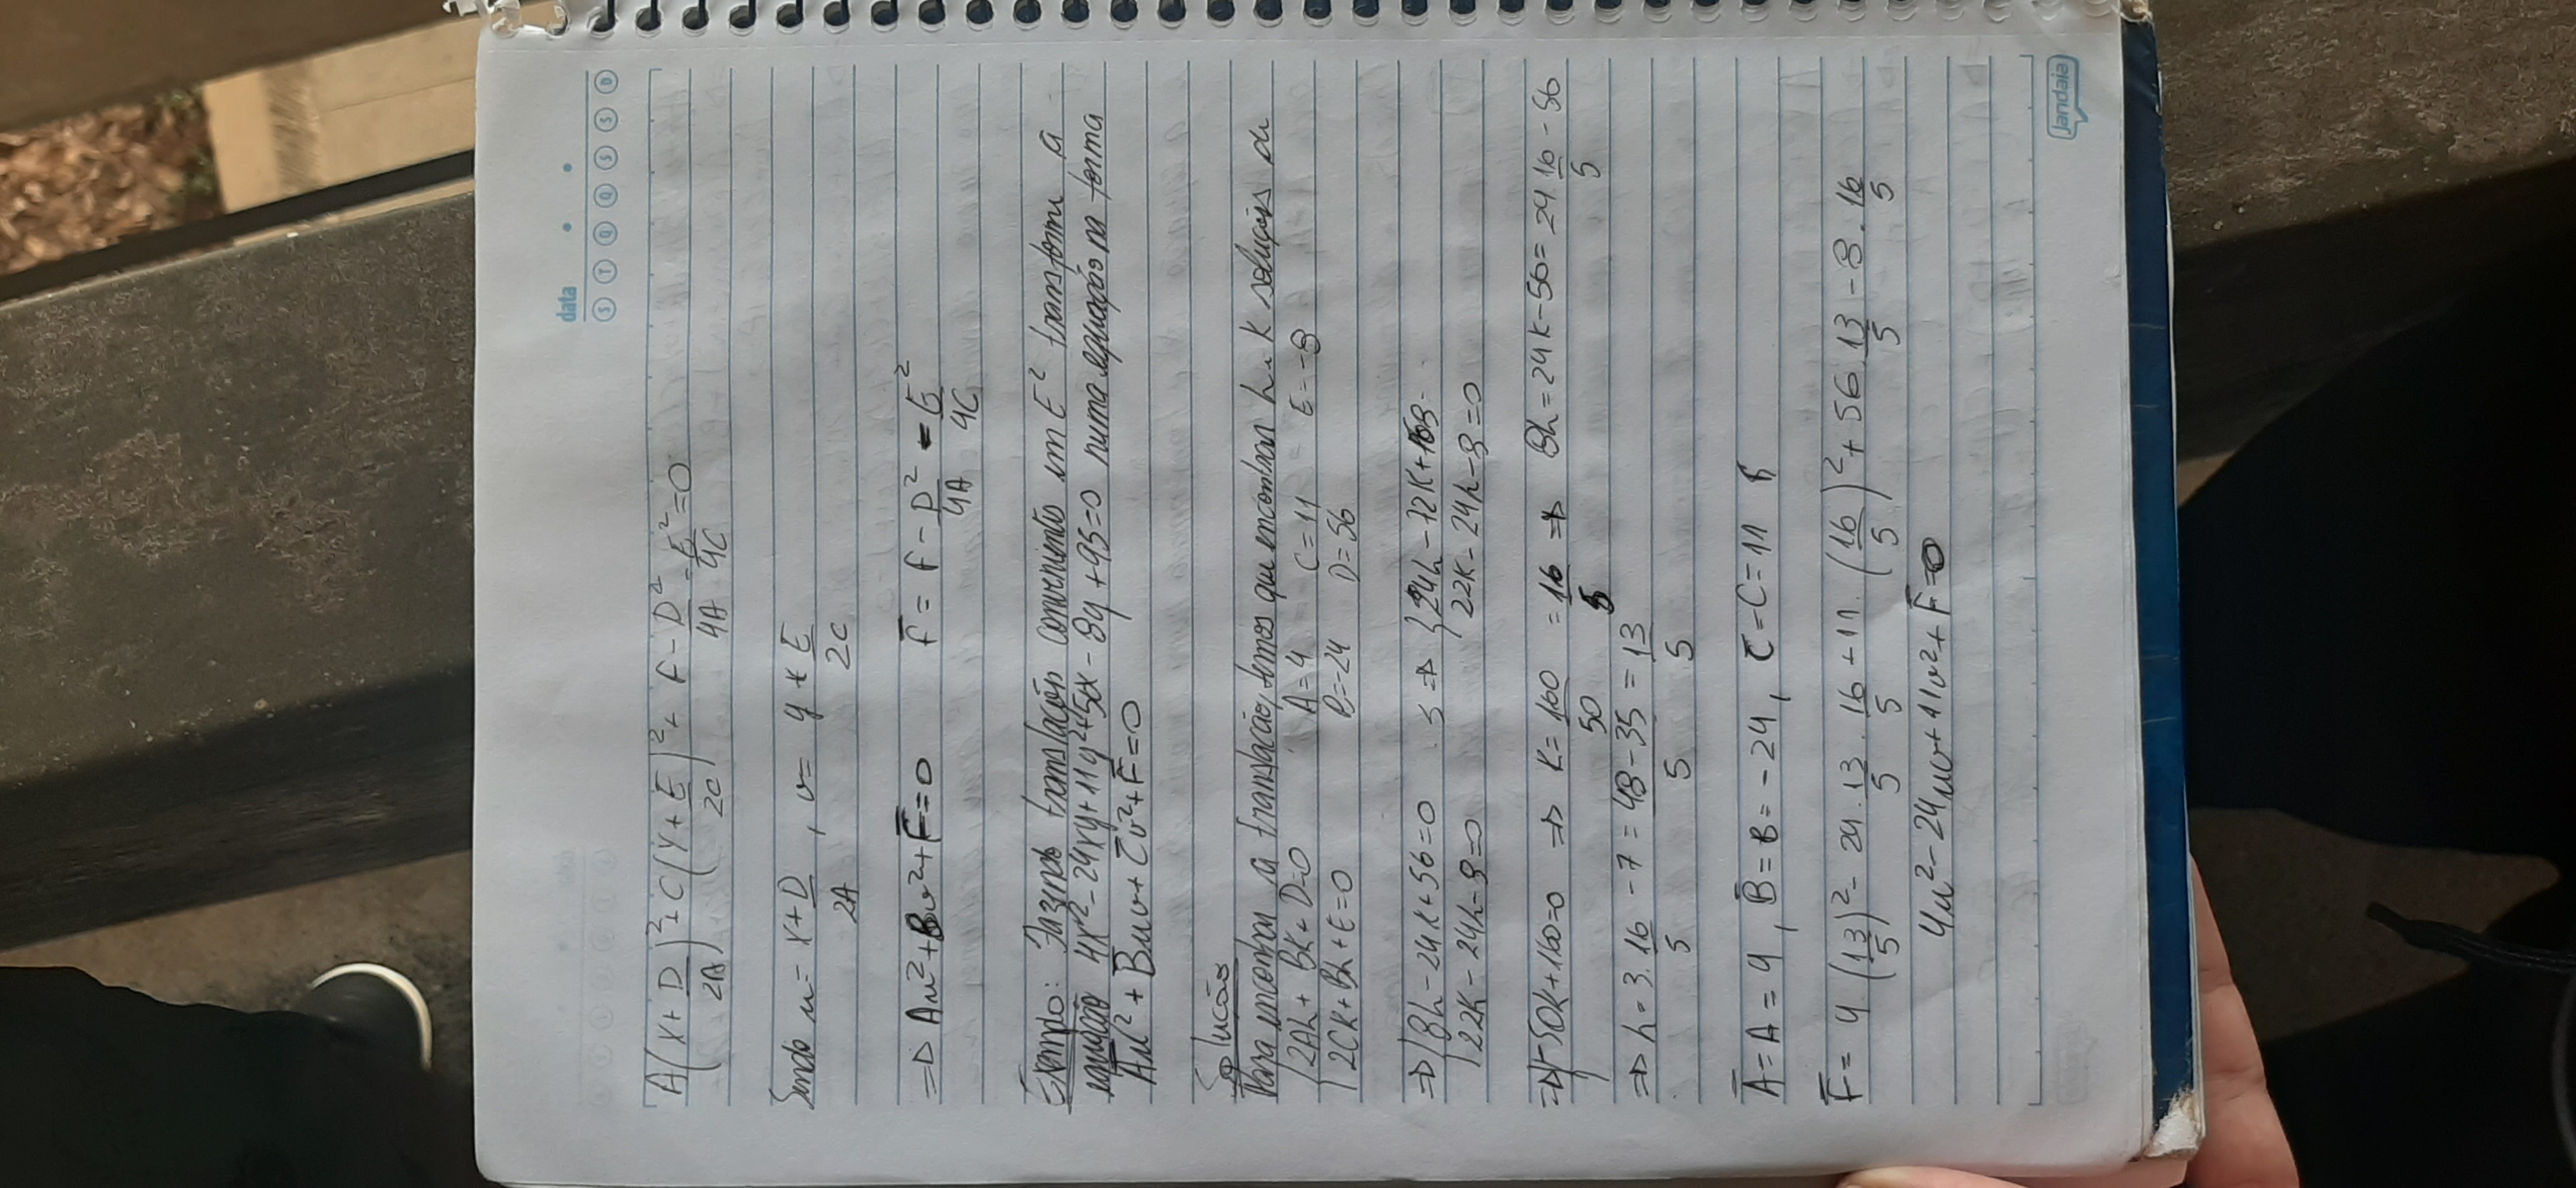 data
S T Q Q S S D
A(x+D/2A)²+C(y+E/2C)²+F-D²/4A-E²/4C=0
Sendo u=x+D/2A, v=y+E/2C
⇒ Au²+Bv²+F̄=0   F̄=F-D²/4A-E²/4C
Exemplo: Fazendo translação conveniente em E² transforme a
equação 4x²-24xy+11y²+56x-8y+95=0 numa equação na forma
Āu²+B̄uv+C̄v²+F̄=0
Solução
Para encontrar a translação, temos que encontrar h e k soluções de
{2Ah+Bk+D=0   A=4   C=11   E=-8
{2Ck+Bh+E=0   B=-24   D=56
⇒ {8h-24k+56=0   ⇒ {24h-72k+168
{22k-24h-8=0   22k-24h-8=0
-50k+160=0 ⇒ k=160/50=16/5 ⇒ 8h=24k-56=24 16/5-56
⇒ h=3.16/5-7=48-35/5=13/5
Ā=A=4, B̄=B=-24, C̄=C=11
F̄=4.(13/5)²-24.13/5.16/5+11.(16/5)²+56.13/5-8.16/5
4u²-24uv+11v²+F̄=0
jandaia